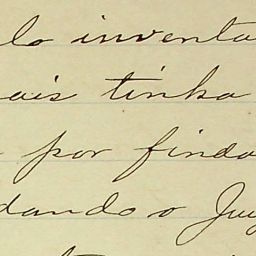 lo inventa
ais tinha
por finda
dando o Juy